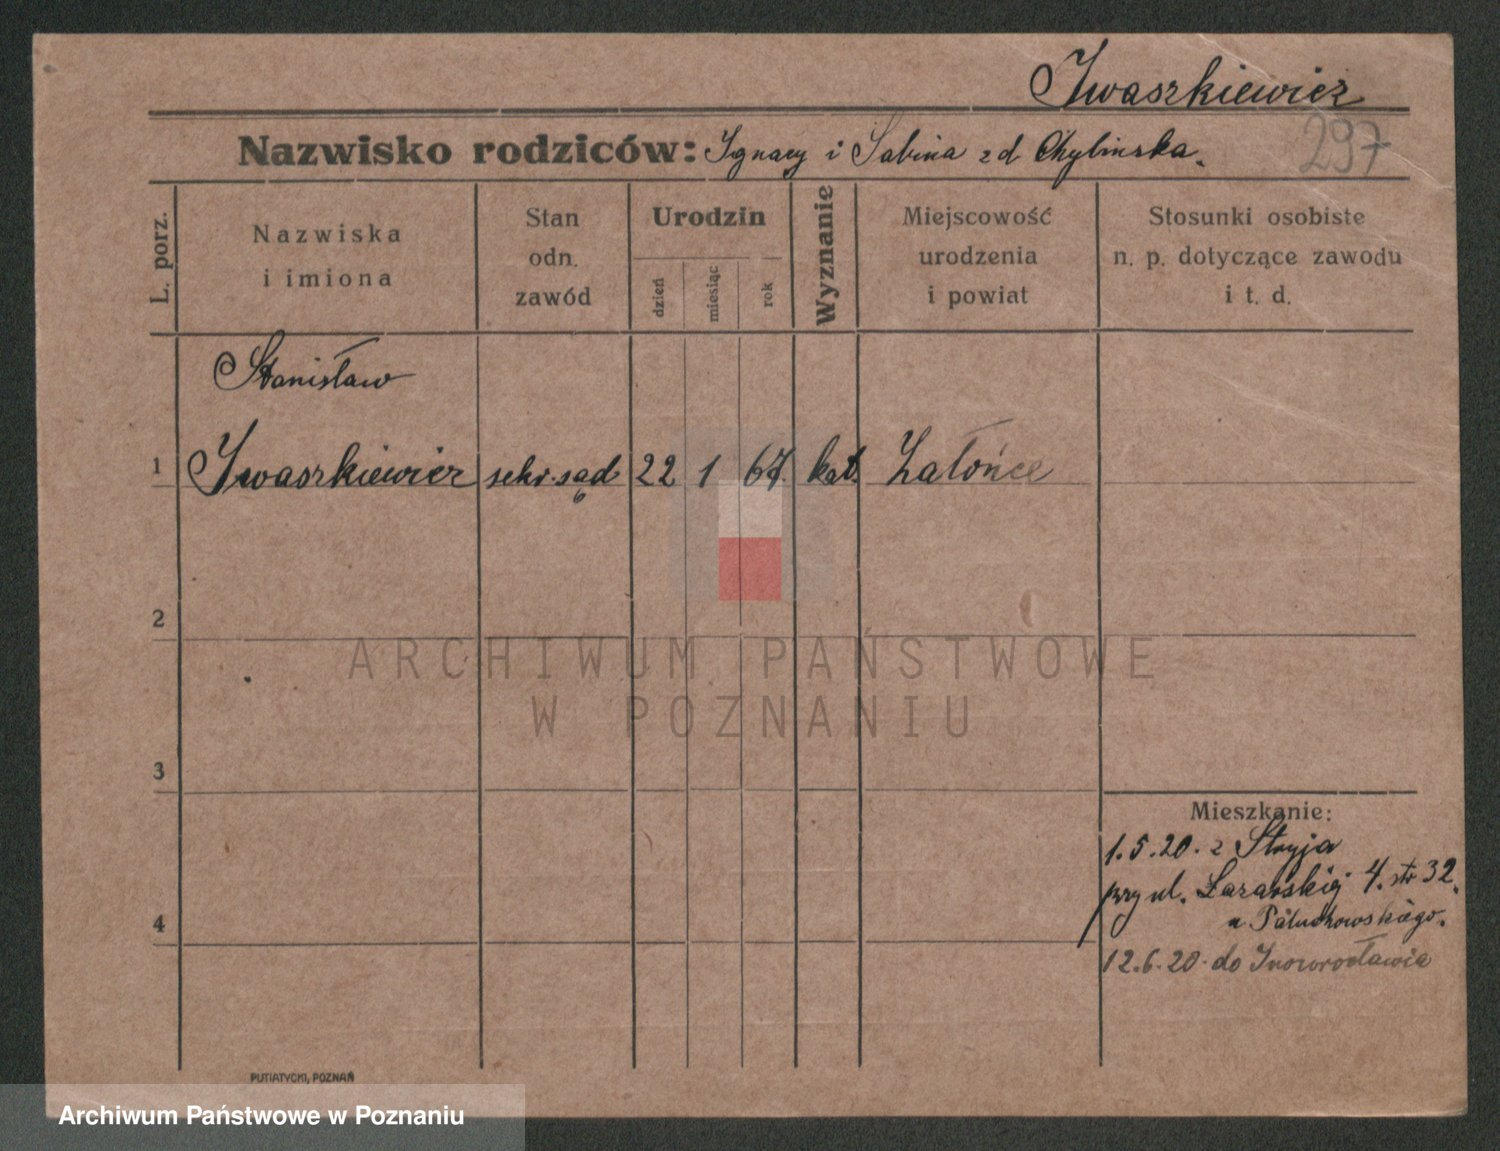 Iwaszkiewicz
297
Nazwisko rodziców: Ignacy i Sabina zd Chylinska.
L. porz.
Nazwiska
i imiona
Stan
odn.
zawód
Urodzin
dzień
miesiąc
rok
Wyznanie
Miejscowość
urodzenia
i powiat
Stosunki osobiste
n. p. dotyczące zawodu
i t. d.
Stanisław
1 Iwaszkiewicz sekr. sąd 22 1 67. kat. Załońce
2
3
4
Mieszkanie:
1.5.20. z Stryja
przy ul. Łazarskiej 4. str 32.
u Paluchowskiego.
12.6.20. do Inowrocławia
PUTIATYCKI, POZNAŃ
ARCHIWUM PAŃSTWOWE
W POZNANIU
Archiwum Państwowe w Poznaniu